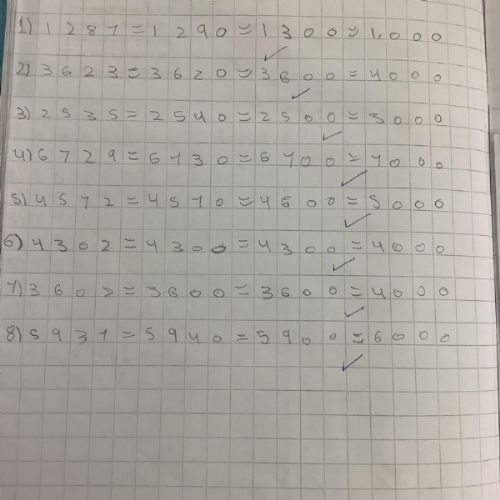 1) 1287=1290≈1300≈1,000
2) 3623≈3620≈3600=4000
3) 2535=2540=2500=3000
4) 6729=6730=6700=7000
5) 4572=4570=4600=5000
6) 4302=4300=4300=4000
7) 3602=3600=3600=4000
8) 5937=5940=5900=6000